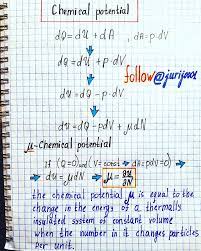 Chemical potential
dQ = dU + dA , dA = p·dV
dQ = dU + p·dV
follow@jurijoo
dU = dQ - p·dV
dU = dQ - pdV + μdN
μ-Chemical potential
if (Q=0 and (V=const → dA=pdV=0)
→ dU = μdN → μ = ∂U/∂N
the chemical potential μ is equal to the
change in the energy of a thermally
insulated system of constant volume
when the number in it changes particles
per unit.